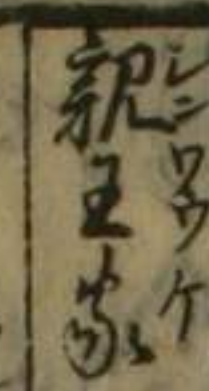 親王家
シンワウケ